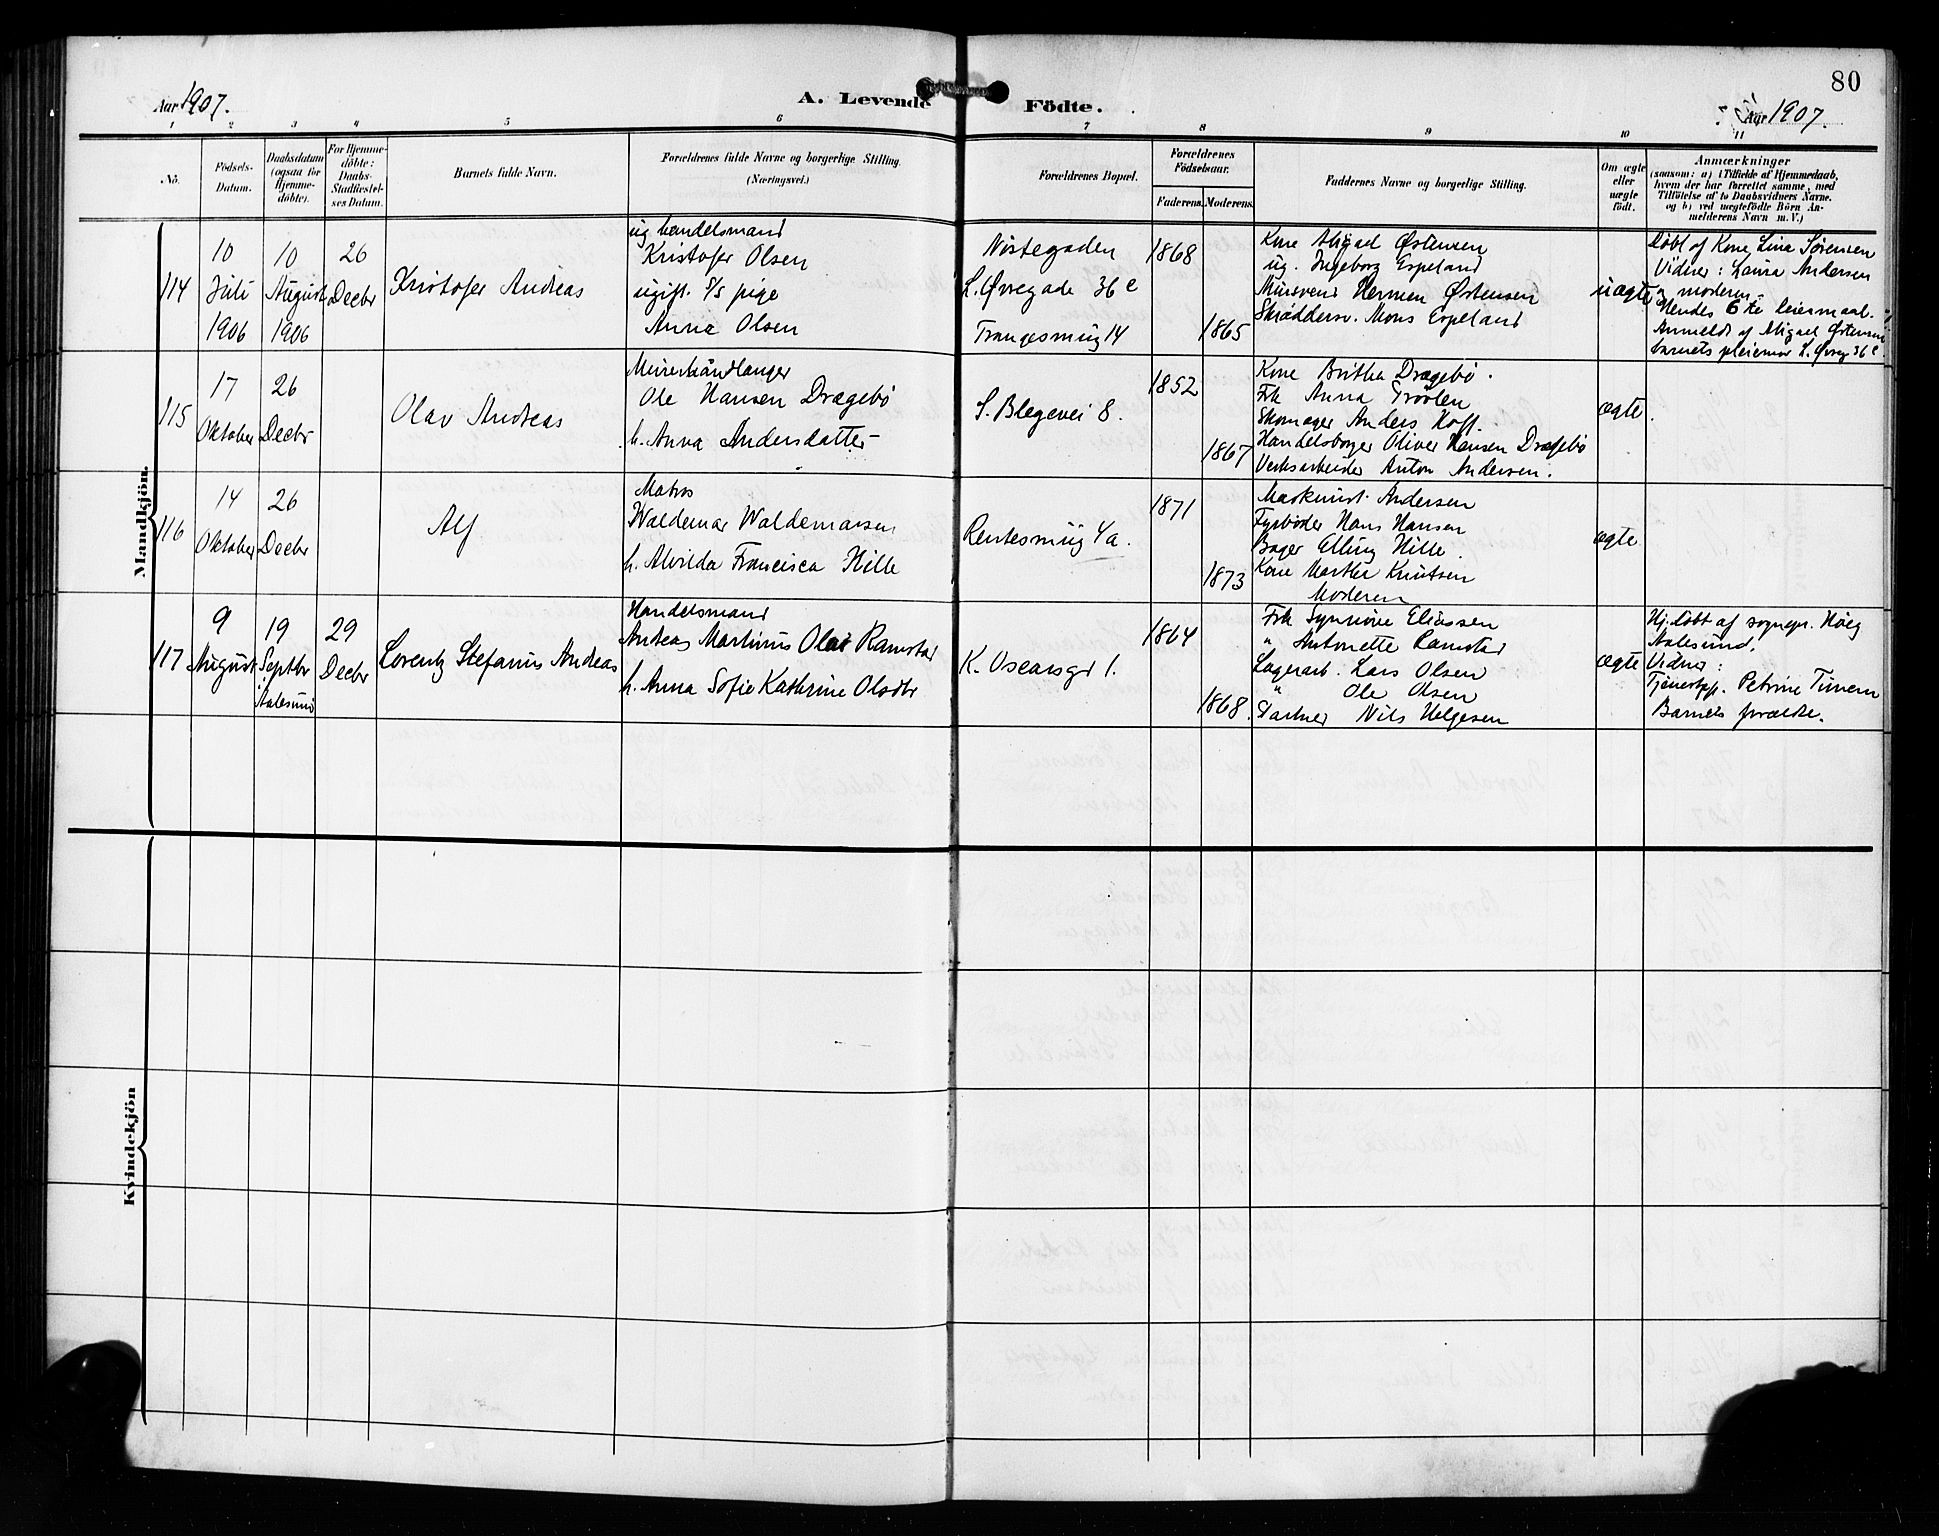 80
Aar 1907.
A. Levende Födte.
Aar 1907.
1 2 3 4 5 6 7 8 9 10 11
No.
Födsels-
Datum.
Daabsdatum
(ogsaa for
Hjemme-
döbte).
For Hjemme-
döbte:
Daabs-
Stadfæstel-
ses Datum.
Barnets fulde Navn.
Forældrenes fulde Navne og borgerlige Stilling.
(Næringsvei.)
Forældrenes Bopæl.
Forældrenes
Födselsaar.
Faderens.
Moderens.
Faddernes Navne og borgerlige Stilling.
Om ægte
eller
uægte
födt.
Anmærkninger
(saasom: a) i Tilfælde af Hjemmedaab,
hvem der har forrettet samme, med
Tilföielse af to Daabsvidners Navne,
og b) ved uægtefödte Börn An-
melderens Navn m. V.)
Mandkjön.
114
10
Juli
1906
10
August
1906
26
Decbr
Kristofer Andreas
ug handelsmand
Kristofer Olsen
ugift pige
Anna Olsen
Nøstegaden
L. Øvregade 36 c
Trangesmug 14
1868
1865
Kone Abigael Østensen
ug. Ingeborg Espeland
Mursvend Herman Østensen
Skræddersv. Mons Espeland
uægte
Döbt af Kone Lina Sørensen
Vidner: Laura Andersen
& moderen.
Hendes 6te leiermaal.
Anmeldt af Abigael Østensen
barnets pleiemor L. Øvreg 36 c
115
17
Oktober
26
Decbr
Olav Andreas
Murerhåndlanger
Ole Hansen Drægebø
h. Anna Andersdatter
S. Blegevei 8.
1852
1867
Kone Brithe Drægebø.
Frk Anna
Skomager Anders Hoff.
Handelsborger Oliver Hansen Drægebø
Verksarbeider Anton Andersen.
ægte.
116
14
Oktober
26
Decbr
Alf
Matros
Waldemar Waldemarsen
h. Alvilda Francisca Hille
Rentesmug 4a.
1871
1873
Maskinist Andersen
Fyrbøder Hans Hansen
Bager Elling Hille.
Kone Marthe Knutsen
Moderen
ægte
117
9
August
19
Septbr
Aalesund
29
Decbr
Lorentz Stefanus Andreas
Handelsmand
Andreas Martinus Olai Ramstad
h. Anna Sofie Kathrine Olsdtr
K. Oscarsgt 1.
1864
1868.
Frk Synnøve Eliassen
" Antonette Ramstad
Lagerarb. Lars Olsen
" Ole Olsen
Gartner Nils Helgesen
ægte
Hj. döbt af sognepr. Høeg
Aalesund.
Vidner:
Tjenestepp. Petrine
Barnets forældre.
Kvindekjön